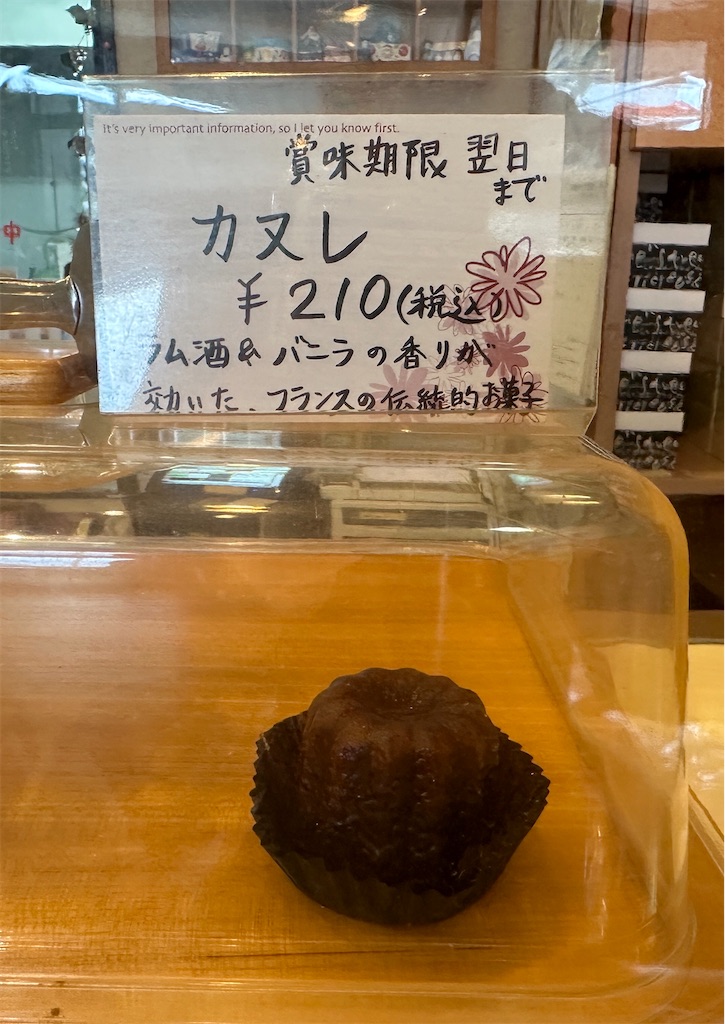 It's very important information, so I let you know first.
賞味期限 翌日
まで
カヌレ
¥210(税込)
ラム酒& バニラの香りが
効いた、フランスの伝統的お菓子
中